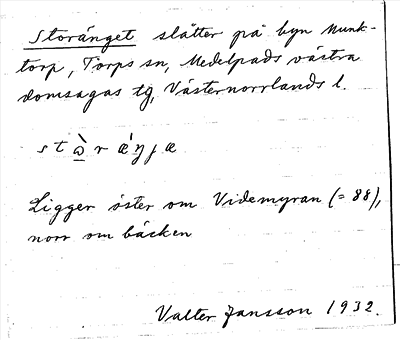 Storänget slåtter på byn Munk-
torp, Torps sn, Medelpads västra
domsagas tg, Västernorrlands l.
st ò̱ r ǽ ŋ j æ
Ligger öster om Videmyran (= 88),
norr om bäcken
Valter Jansson 1932.